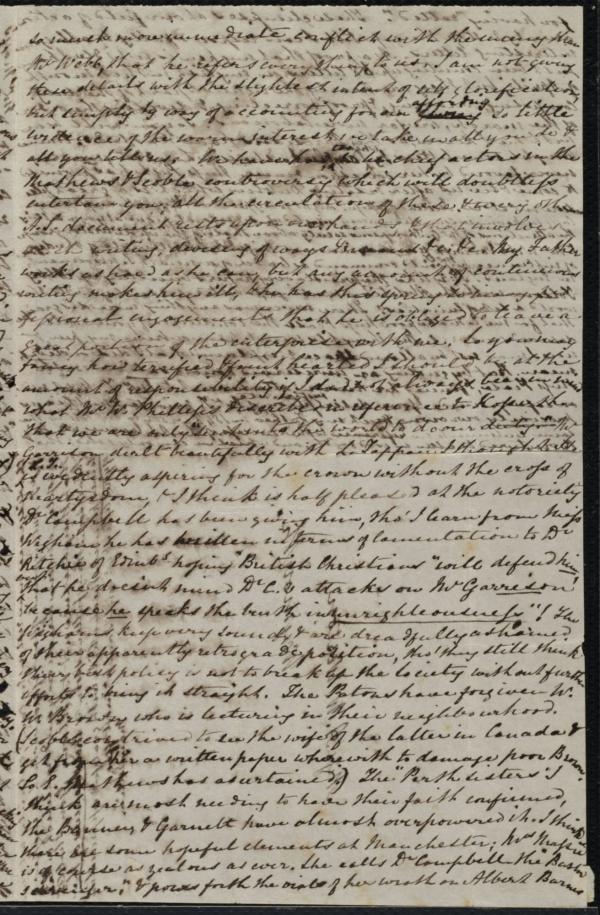 so much more immediate conflict with the enemy than
Mr Webb, that he refers everything to us. I am not giving
these details with the slightest intent of self glorification,
but simply by way of accounting for our affording so little
evidence of the warm interest we take in all you do &
all you tell us. We have had to be chief actors in the
Mathews & Scoble controversy which will doubtless
entertain you, all the circulation of these & every other
A.S. document rests upon our hands & involves
much writing, devising of ways & means &c &c. My Father
works as hard as he can, but any amount of continuous
writing makes him ill, & he has this spring so many
professional engagements that he is obliged to leave a
great portion of the enterprise with me. So you may
fancy how terrified & faint hearted I should be at the
amount of responsibility if I did not always bear in mind
what Mr W. Phillips described in reference to
that we are only to the world to do our duty. Mr
Garrison dealt beautifully with L. Tappan I thought.
is evidently aspiring for the crown without the cross of
martyrdom, & I think is half pleased at the notoriety
Dr Campbell has been giving him, tho' I learn from Miss
Wigham he has written in terms of lamentation to Dr
Ritchie of Edinb. hoping "British Christians" will defend him,
that he doesn't mind Dr C.'s attacks on Mr Garrison
because he speaks the truth in unrighteousness"! The
Wighams keep very sound, & are dreadfully ashamed
of their apparently retrograde position, tho' they still think
their best policy is not to break up the Society without further
efforts to bring it straight. The Patons have forgiven W.
W. Brown who is lecturing in their neighbourhood.
Scoble contrived to see the wife of the latter in Canada &
get from her a written paper wherewith to damage poor Brown.
So E. Mathews has ascertained. The "Perth sisters" I
think are most needing to have their faith confirmed,
the Banner & Garnett have almost overpowered it. I think
there are some hopeful elements at Manchester; Mrs
is of course as zealous as ever. She calls Dr Campbell the
scavenger," & pours forth the vials of her wrath on Albert Barnes